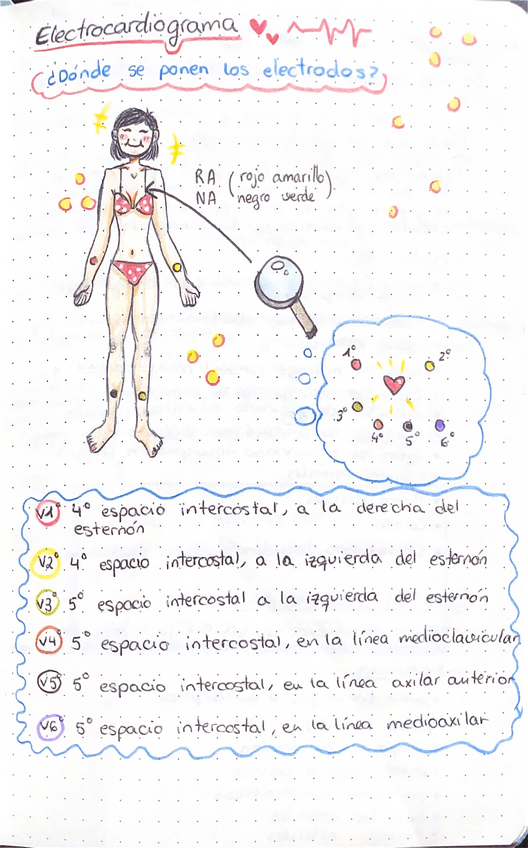 Electrocardiograma
¿Dónde se ponen los electrodos?
RA (rojo amarillo)
NA (negro verde)
1º
2º
3º
4º
5º
6º
V1º 4º espacio intercostal, a la derecha del
esternón
V2º 4º espacio intercostal, a la izquierda del esternón
V3º 5º espacio intercostal a la izquierda del esternón
V4º 5º espacio intercostal, en la línea medioclavicular
V5º 5º espacio intercostal, en la línea axilar anterior
V6º 5º espacio intercostal, en la línea medioaxilar